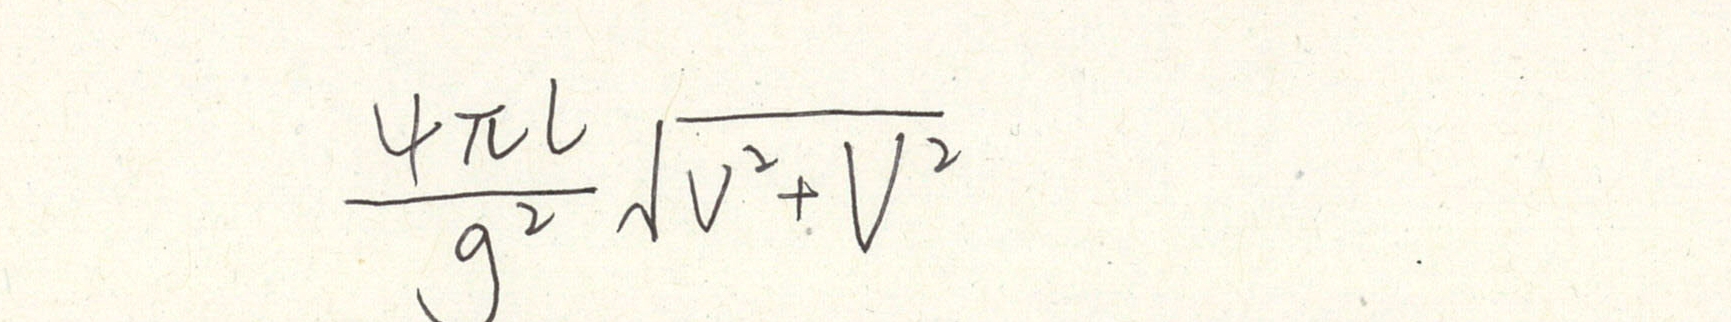 \frac{4\pi l}{g^2}\sqrt{v^2+V^2}